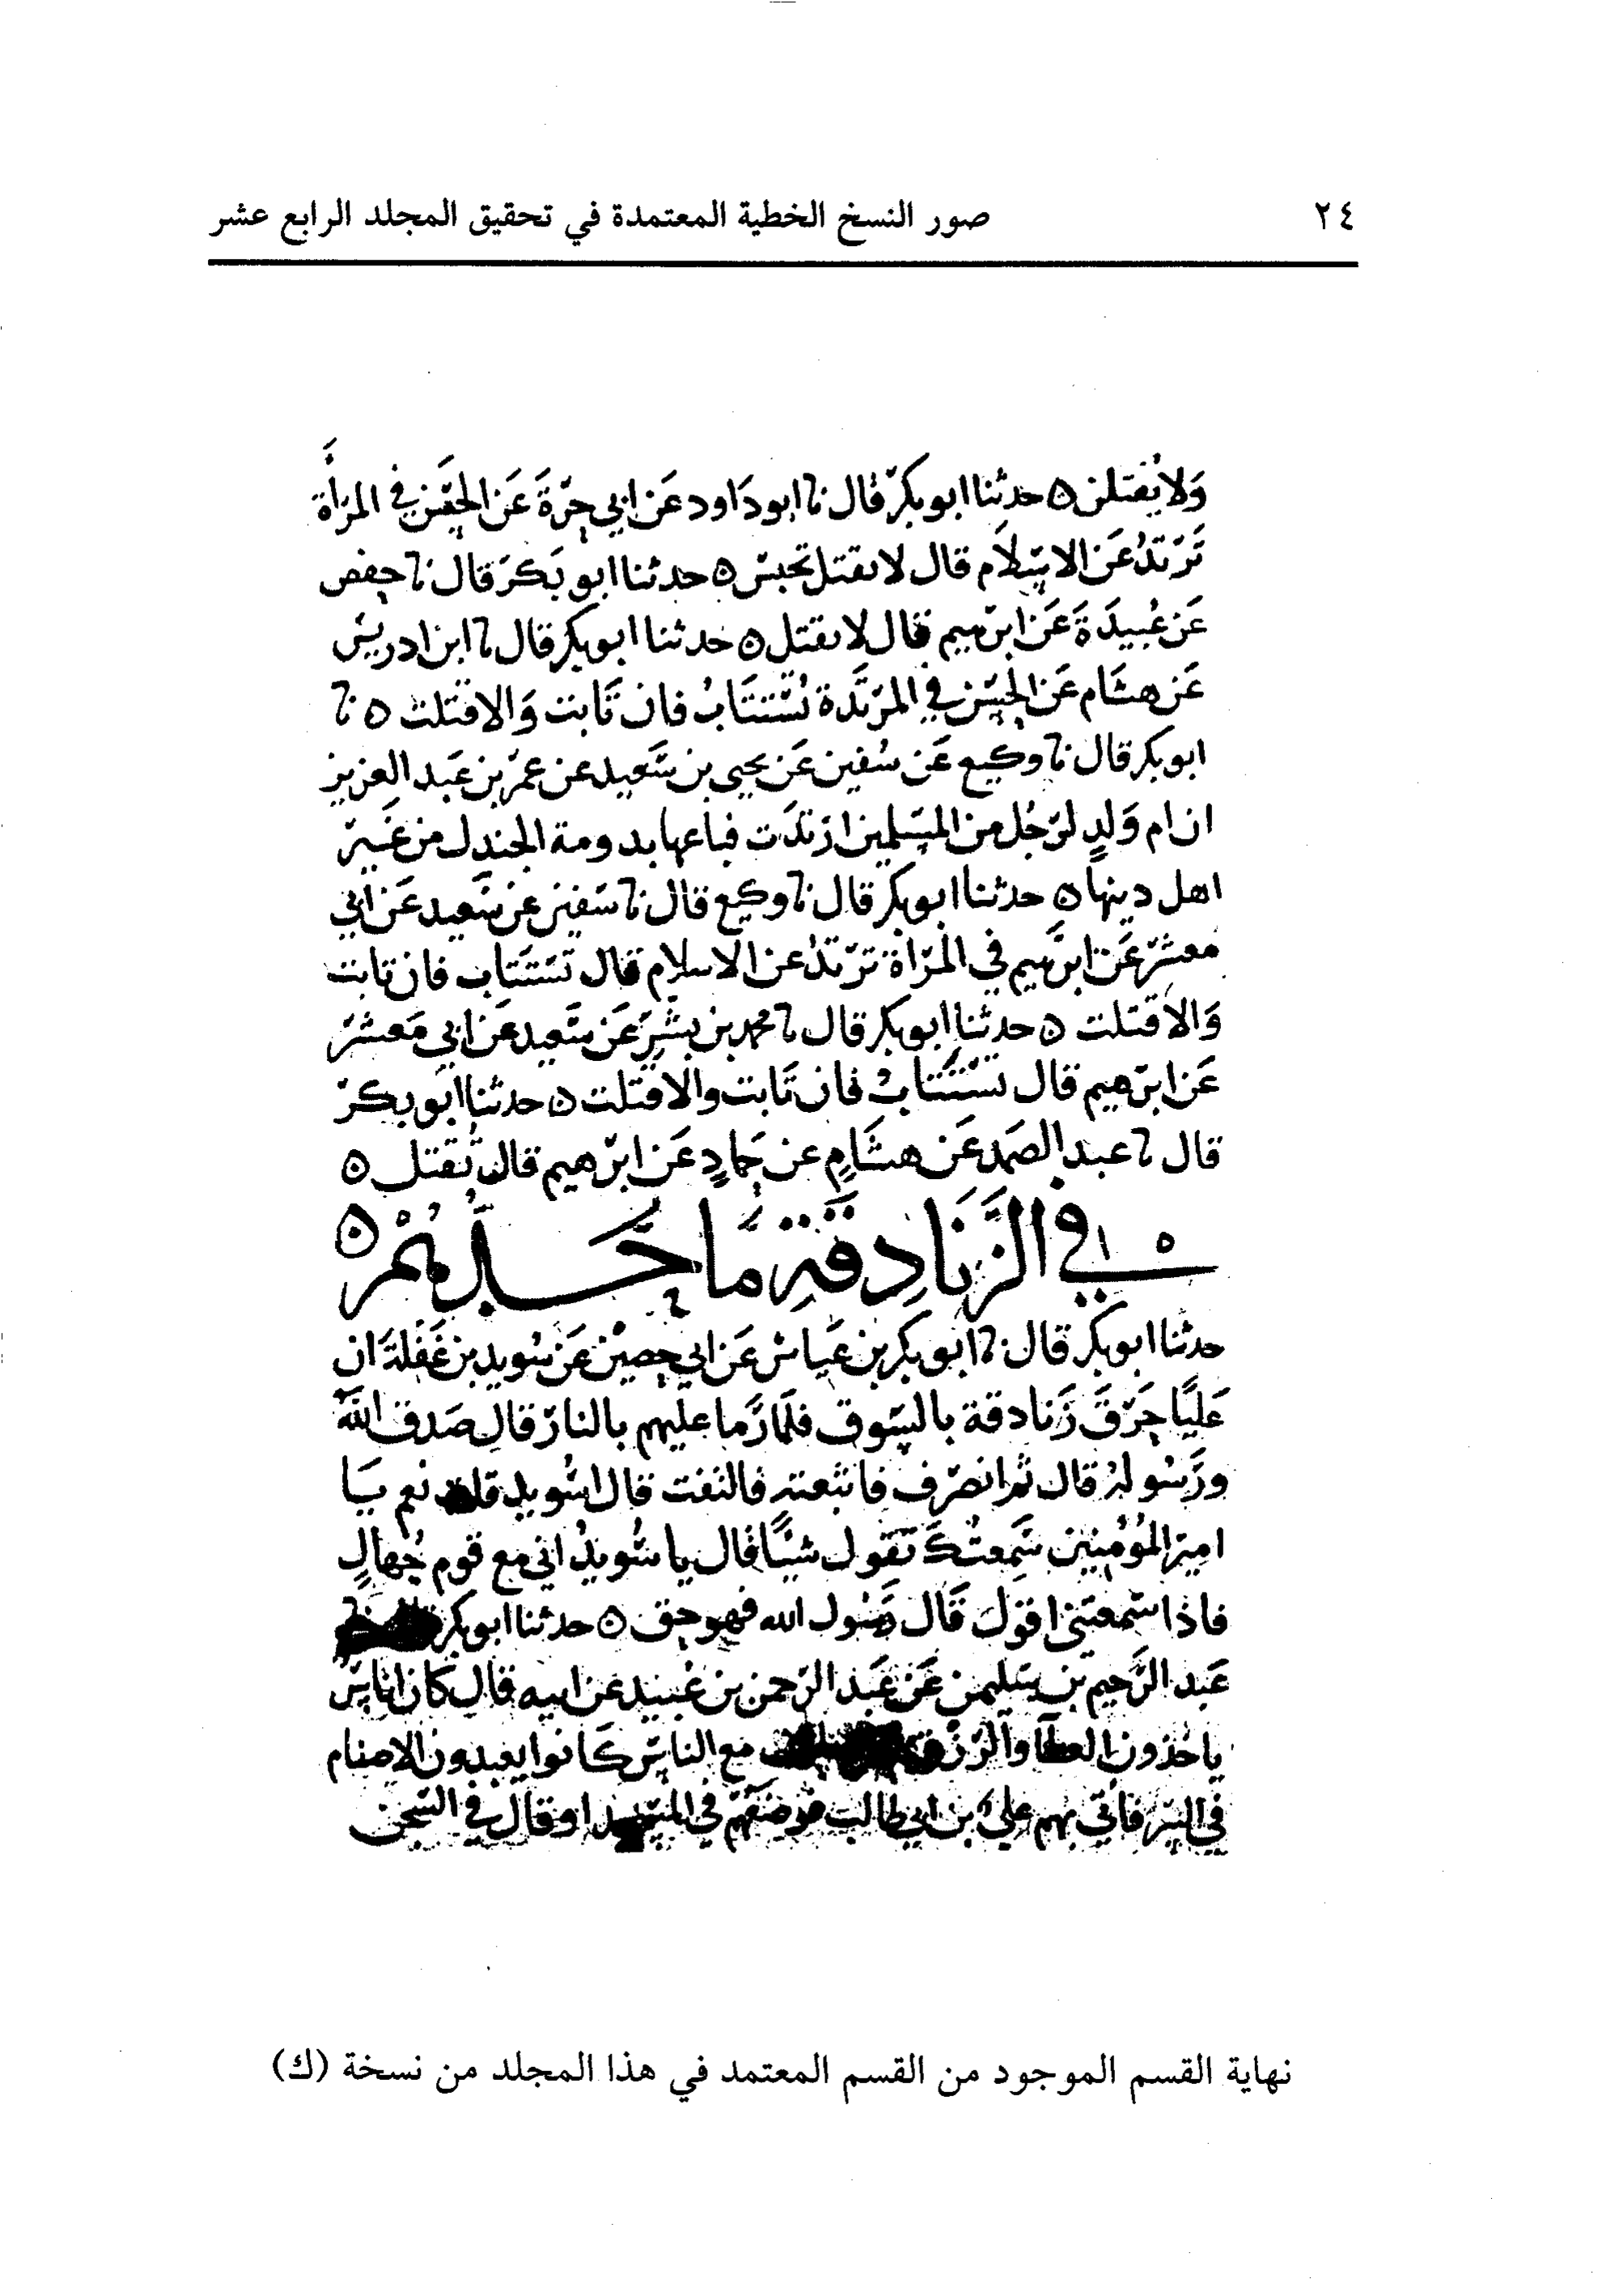 ٢٤
صور النسخ الخطية المعتمدة في تحقيق المجلد الرابع عشر
وَلا يُقتلن ه حدثنا ابو بكر قال نا ابو داود عَن ابي حرّةَ عَن الحسَن في المرأَة
تَرتَدُ عَن الاسلَام قال لا تقتل تحبس ه حدثنا ابو بَكر قال نا حفص
عَن عُبيدَةَ عَن ابرهيم قال لا تقتل ه حدثنا ابو بكر قال نا ابن ادريس
عَن هشَام عَن الحسَن في المرتَدة تُستَتَابُ فان تَابت وَالا قتلت ه نا
ابو بكر قال نا وكيع عَن سُفين عَن يحيى بن سَعيد عن عمر بن عَبد العزيز
ان ام وَلدٍ لرَجُل من المسلمين ارتدَت فباعها بدومة الجندل من غَير
اهل دينها ه حدثنا ابو بكر قال نا وكيع قال نا سفين عن سَعيد عَن ابي
معشر عَن ابرهيم في المرأة ترتدُ عن الاسلام قال تستَتَاب فان تابت
وَالا قتلت ه حدثنا ابو بكر قال نا محمد بن بشرٍ عَن سَعيد عَن ابي مَعشر
عَن ابرهيم قال تستَتَابُ فان تَابت والا قتلت ه حدثنا ابو بكر
قال نا عبد الصَمد عَن هشَامٍ عن حمادٍ عَن ابرهيم قال تُقتل ه
في الزَنَادِقَةِ مَا حَدُّهُمْ ه
حدثنا ابو بكر قال نا ابو بكر بن عَياش عَن ابي حصين عَن سُويد بن غَفَلَة ان
عَليًا حَرَّقَ زَنادقة بالسوق فلمَا رَما عليهم بالنار قال صَدق اللهُ
ورَسُولهُ قال ثم انصَرف فاتبعته فالتفت قال اسُويد قلت نعم يَا
اميرَ المُؤمنين سَمِعتُكَ تَقول شيئًا فقال يا سُويدُ اني مع قوم جُهالٍ
فاذا سمعتني اقول قَال رَسُول الله فهو حق ه حدثنا ابو بكر
عَبد الرَّحيم بن سليمن عَن عَبد الرّحمن بن عُبيد عن ابيه قال كان اناس
ياخذون العطآ والرّزق مع الناس كَانوا يعبدون الاصنام
في السر فاتي بهم عليُ بن ابي طالب فوضعَهم في المسجد او قال في السّجن
نهاية القسم الموجود من القسم المعتمد في هذا المجلد من نسخة (ك)